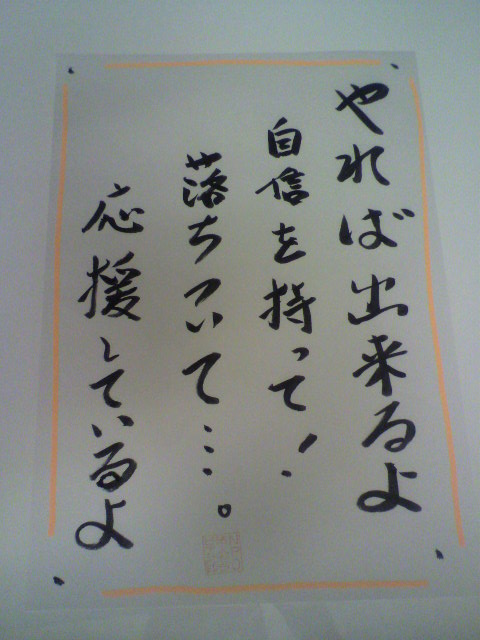 やれば出来るよ
自信を持って!
落ちついて…。
応援しているよ